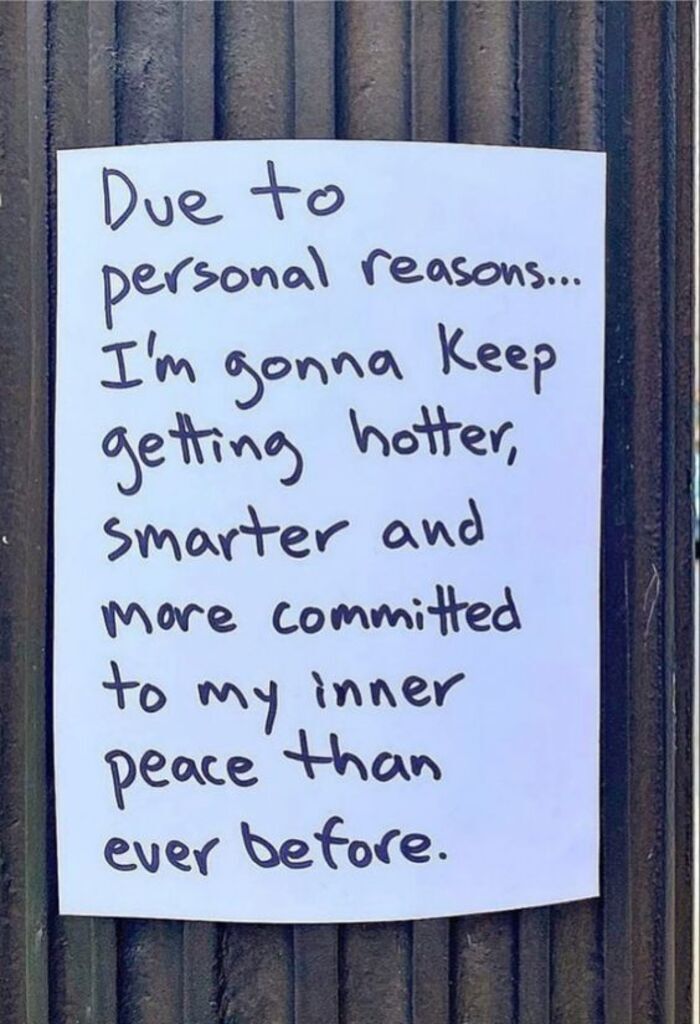 Due to
personal reasons...
I'm gonna keep
getting hotter,
smarter and
more committed
to my inner
peace than
ever before.